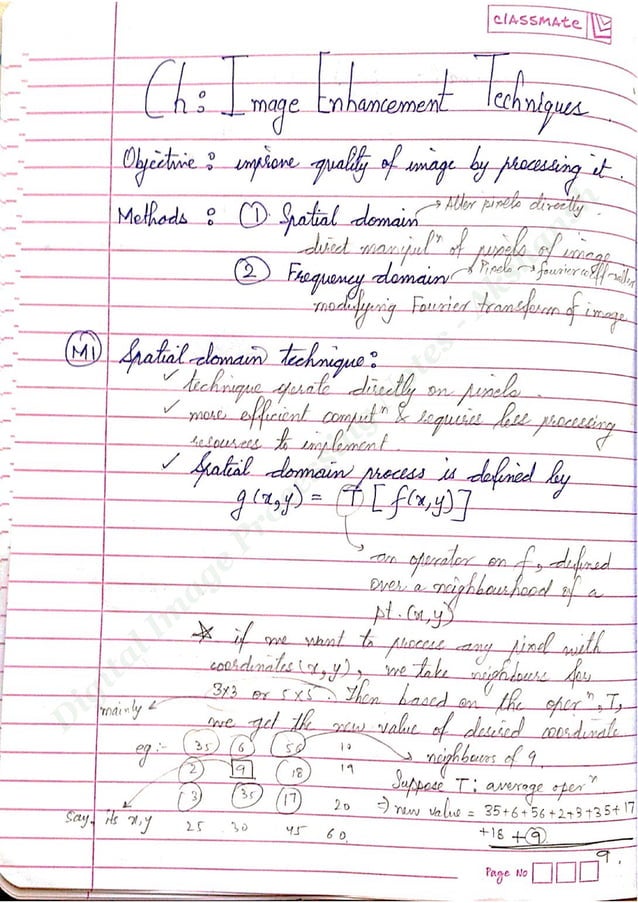 classmate
Ch: Image Enhancement Techniques
Objective: improve quality of image by processing it.
Methods: ① Spatial domain → Alter pixels directly
direct manipulⁿ of pixels of image
② Frequency domain → Pixels → fourier coeff → alter
modifying Fourier transform of image
M1 Spatial domain technique:
✓ technique operate directly on pixels.
✓ more efficient computⁿ & requires less processing
resources to implement.
✓ Spatial domain process is defined by
g(x,y) = T [f(x,y)]
→ an operator on f, defined
over a neighbourhood of a
pt. (x,y)
☆ if we want to process any pixel with
coordinates (x,y), we take neighbours say
3x3 or 5x5. Then based on the operⁿ, T,
mainly
we get the new value of desired coordinate
eg:- 35 6 56 10 → neighbours of 9.
2 9 18 19 Suppose T: average operⁿ
3 35 17 20 ⇒ new value = 35+6+56+2+3+35+17
Say, its x,y 25 30 45 60 +18 +9
9.
Page No
Digital Image Processing Notes -